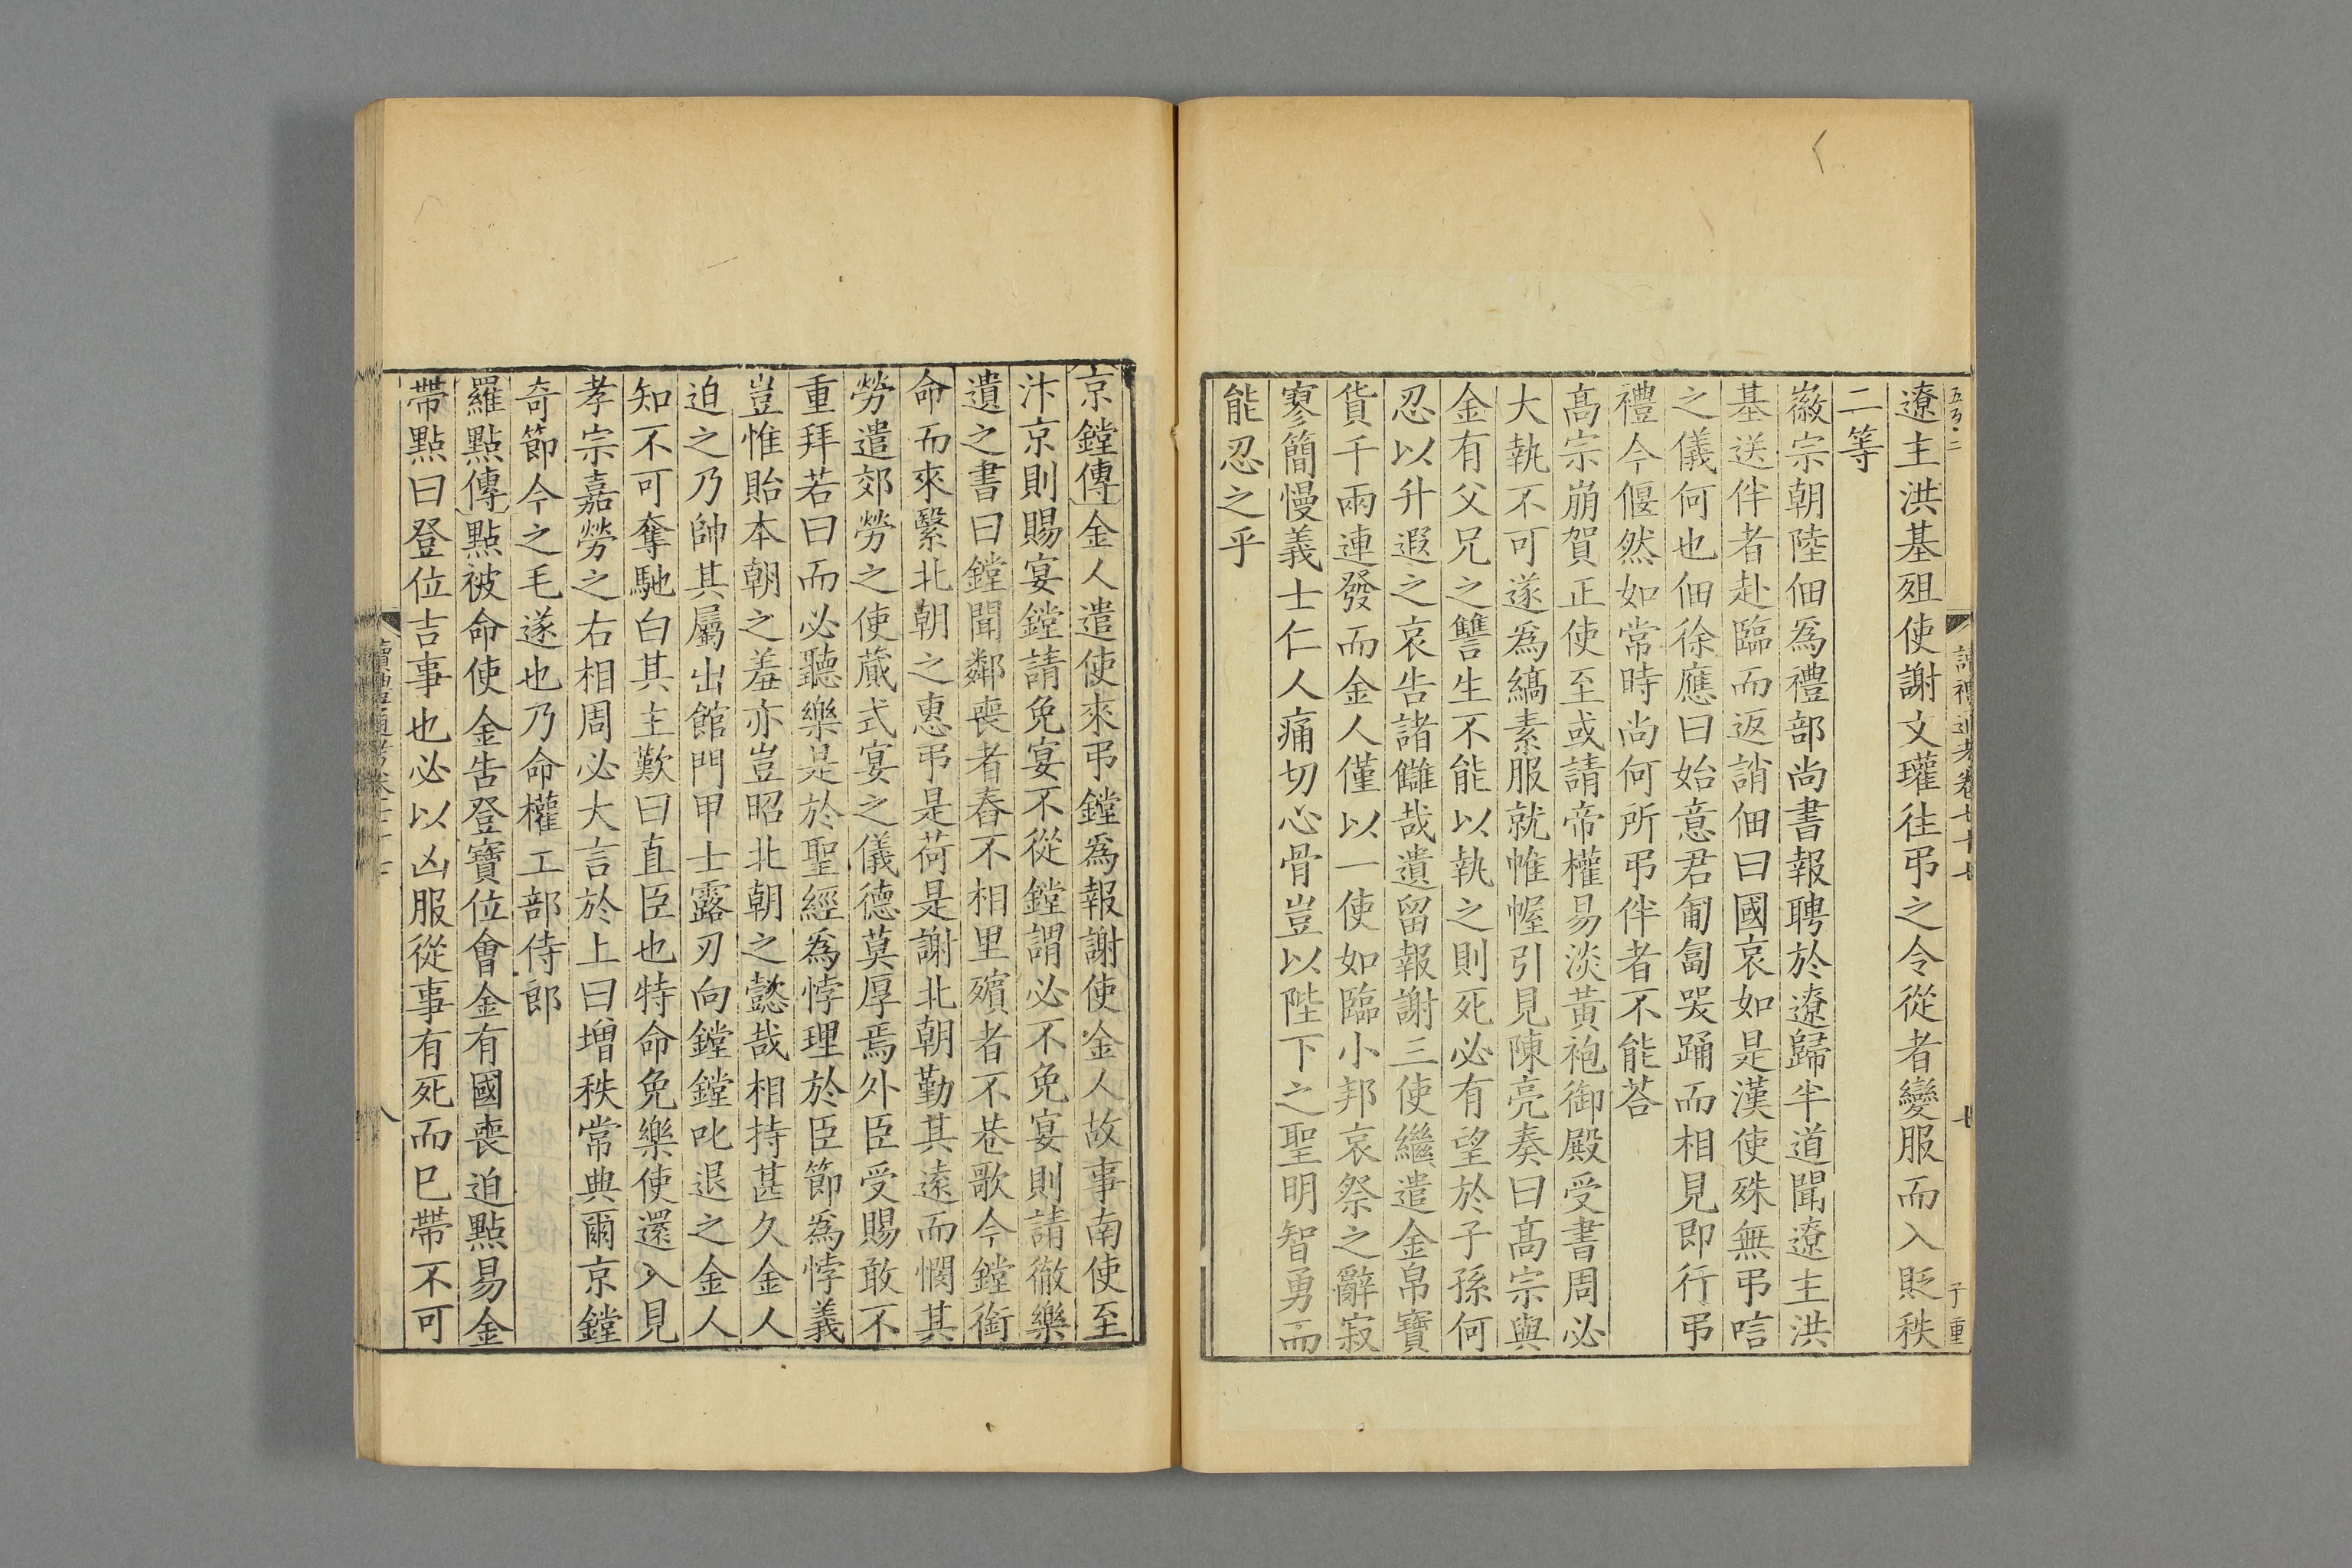 五百二
讀禮通考卷七十七
七
子重
遼主洪基殂使謝文瓘往弔之令從者變服而入貶秩
二等
徽宗朝陸佃爲禮部尚書報聘於遼歸半道聞遼主洪
基送伴者赴臨而返誚佃曰國哀如是漢使殊無弔唁
之儀何也佃徐應曰始意君匍匐哭踊而相見即行弔
禮今偃然如常時尚何所弔伴者不能荅
髙宗崩賀正使至或請帝權易淡黃袍御殿受書周必
大執不可遂爲縞素服就帷幄引見陳亮奏曰髙宗與
金有父兄之讐生不能以執之則死必有望於子孫何
忍以升遐之哀告諸讎哉遺留報謝三使繼遣金帛寶
貨千兩連發而金人僅以一使如臨小邦哀祭之辭寂
寥簡慢義士仁人痛切心骨豈以陛下之聖明智勇而
能忍之乎
京鏜傳金人遣使來弔鏜爲報謝使金人故事南使至
汴京則賜宴鏜請免宴不從鏜謂必不免宴則請徹樂
遺之書曰鏜聞鄰喪者舂不相里殯者不巷歌今鏜銜
命而來繄北朝之惠弔是荷是謝北朝勤其遠而憫其
勞遣郊勞之使蕆式宴之儀德莫厚焉外臣受賜敢不
重拜若曰而必聽樂是於聖經爲悖理於臣節爲悖義
豈惟貽本朝之羞亦豈昭北朝之懿哉相持甚久金人
迫之乃帥其屬出館門甲士露刃向鏜鏜叱退之金人
知不可奪馳白其主歎曰直臣也特命免樂使還入見
孝宗嘉勞之右相周必大言於上曰增秩常典爾京鏜
奇節今之毛遂也乃命權工部侍郎
羅點傳點被命使金告登寶位會金有國喪迫點易金
帶點曰登位吉事也必以凶服從事有死而巳帶不可
讀禮通考卷七十七
八